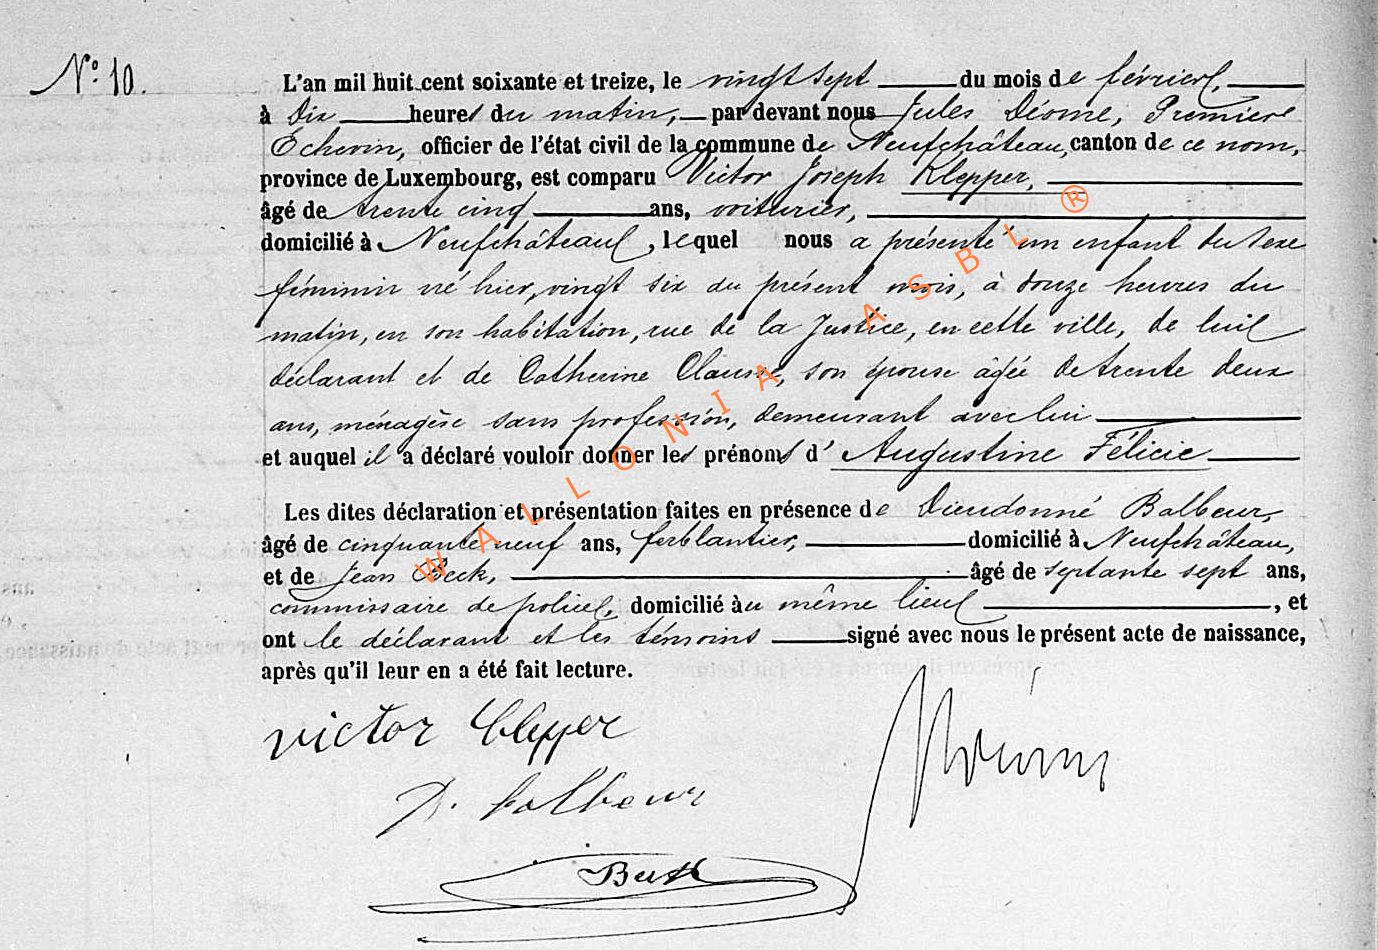 N° 10.
L'an mil huit cent soixante et treize, le vingt sept du mois de février,
à Dix heures du matin, par devant nous Jules Déome, Premier
Echevin, officier de l'état civil de la commune de Neufchâteau, canton de ce nom,
province de Luxembourg, est comparu Victor Joseph Klepper,
âgé de trente cinq ans, voiturier,
domicilié à Neufchâteau, lequel nous a présenté un enfant du sexe
féminin né hier, vingt six du présent mois, à douze heures du
matin, en son habitation, rue de la Justice, en cette ville, de lui
déclarant et de Catherine Clausse, son épouse âgée de trente deux
ans, ménagère sans profession, demeurant avec lui
et auquel il a déclaré vouloir donner les prénoms d'Augustine Félicie
Les dites déclaration et présentation faites en présence de Dieudonné Balbeur,
âgé de cinquante neuf ans, ferblantier, domicilié à Neufchâteau,
et de Jean Beck, âgé de septante sept ans,
commissaire de police, domicilié au même lieu, et
ont le déclarant et les témoins signé avec nous le présent acte de naissance,
après qu'il leur en a été fait lecture.
victor Clepper
D. balbeur
Beck
WALLONIA ASBL ®